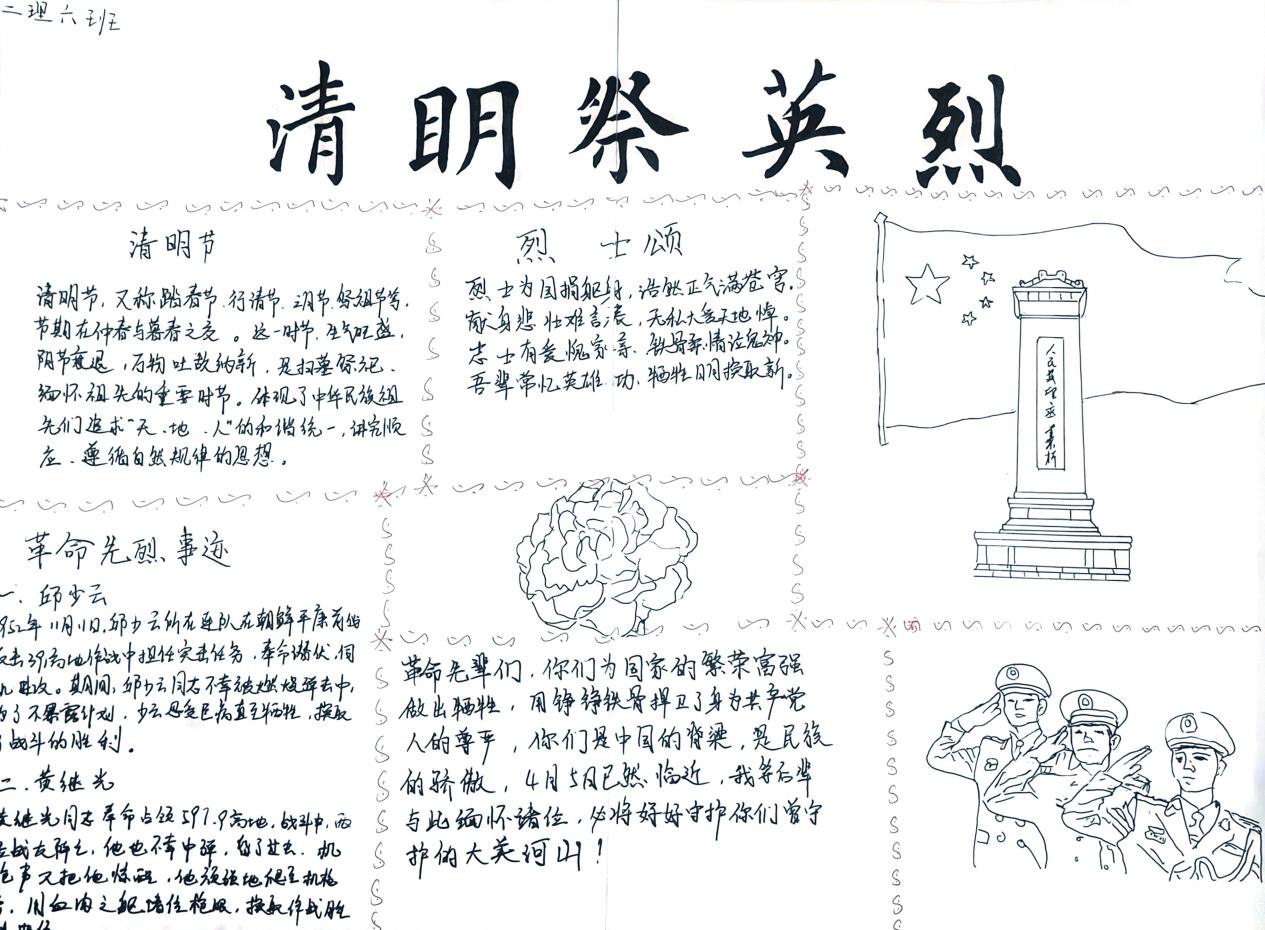 二理六班
清明祭英烈
清明节
清明节，又称踏春节、行清节、三月节、祭祖节等，
节期在仲春与暮春之交。这一时节，生气旺盛，
阴气衰退，万物吐故纳新，是扫墓祭祀、
缅怀祖先的重要时节。体现了中华民族祖
先们追求"天、地、人"的和谐统一，讲究顺
应、遵循自然规律的思想。
烈士颂
烈士为国捐躯身，浩然正气满苍穹。
献身悲壮难言表，无私大爱天地悼。
志士有爱愧家亲，铁骨柔情泣鬼神。
吾辈常忆英雄功，牺牲日月换取新。
人民英雄永垂
革命先烈事迹
一、邱少云
952年11月11日，邱少云所在连队在朝鲜平康前沿
反击391高地作战中担任突击任务，奉命潜伏，伺
机歼敌。期间，邱少云同志不幸被燃烧弹击中，
为了不暴露计划，少云忍受巨痛直至牺牲，换取
了战斗的胜利。
二、黄继光
黄继光同志奉命占领597.9高地，战斗中，两
位战友阵亡，他也不幸中弹，昏了过去。机
枪声又把他惊醒，他顽强地爬至机枪
旁，用血肉之躯堵住枪眼，换取作战胜
革命先辈们，你们为国家的繁荣富强
做出牺牲，用铮铮铁骨捍卫了身为共产党
人的尊严，你们是中国的脊梁，是民族
的骄傲，4月5日已然临近，我等后辈
与此缅怀诸位，必将好好守护你们曾守
护的大美河山！